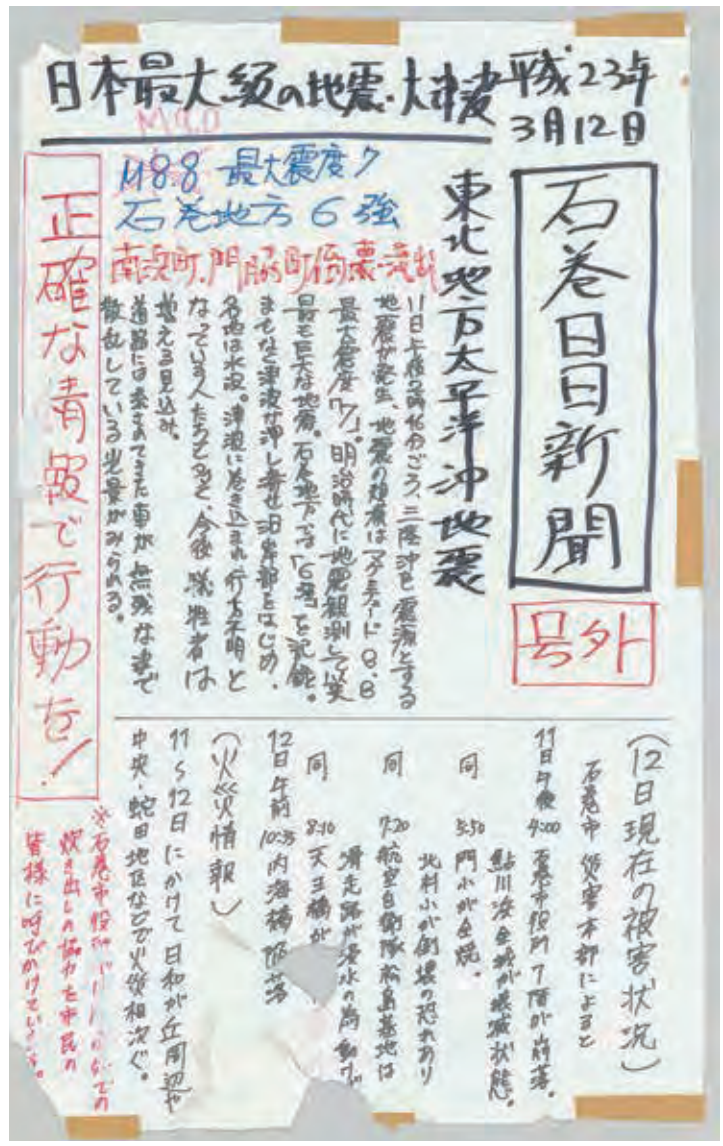 日本最大級の地震・大津波
平成23年
3月12日
石巻日日新聞
号外
東北地方太平洋沖地震
M9.0
M8.8 最大震度7
石巻地方6強
南浜町、門脇町倒壊・流出
11日午後2時46分ごろ、三陸沖を震源とする
地震が発生、地震の規模はマグニチュード8.8
最大震度「7」。明治時代に地震観測して以来
最も巨大な地震。石巻地方では「6強」を記録。
までなぎ津波が押し寄せ沿岸部をはじめ、
各地は水没。津波に巻き込まれ行方不明と
なっている人たちも多く、今後、犠牲者は
増える見込み。
道路には流されてきた車が無残な姿で
散乱している光景がみられる。
正確な情報で行動を!
(12日現在の被害状況)
石巻市災害本部によると
11日午後4:00 石巻市役所7階が崩落。
鮎川浜全域が壊滅状態。
同 5:50 門小が全焼。
北村小が倒壊の恐れあり
同 7:20 航空自衛隊松島基地は
滑走路が浸水の為動けず
同 8:10 天王橋が
12日午前10:35 内海橋
(火災情報)
11〜12日にかけて日和が丘周辺や
中央・蛇田地区などで火災相次ぐ。
※石巻市役所
炊き出しの協力を市民の
皆様に呼びかけています。